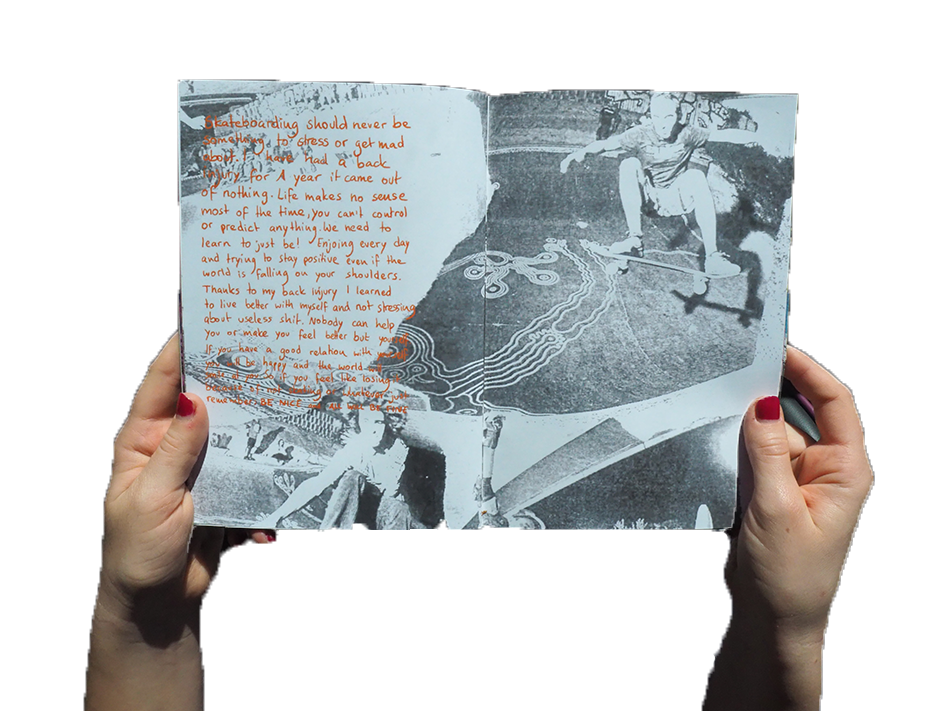 Skateboarding should never be
something to stress or get mad
about. I have had a back
injury for 1 year it came out
of nothing. Life makes no sense
most of the time, you can't control
or predict anything. We need to
learn to just be! Enjoing every day
and trying to stay positive even if the
world is falling on your shoulders.
Thanks to my back injury I learned
to live better with myself and not stressing
about useless shit. Nobody can help
you or make you feel better but yourself
If you have a good relation with yourself
you will be happy and the world will
you so if you feel like losing it
because of not landing or whatever just
remember BE NICE and ALL WILL BE FINE